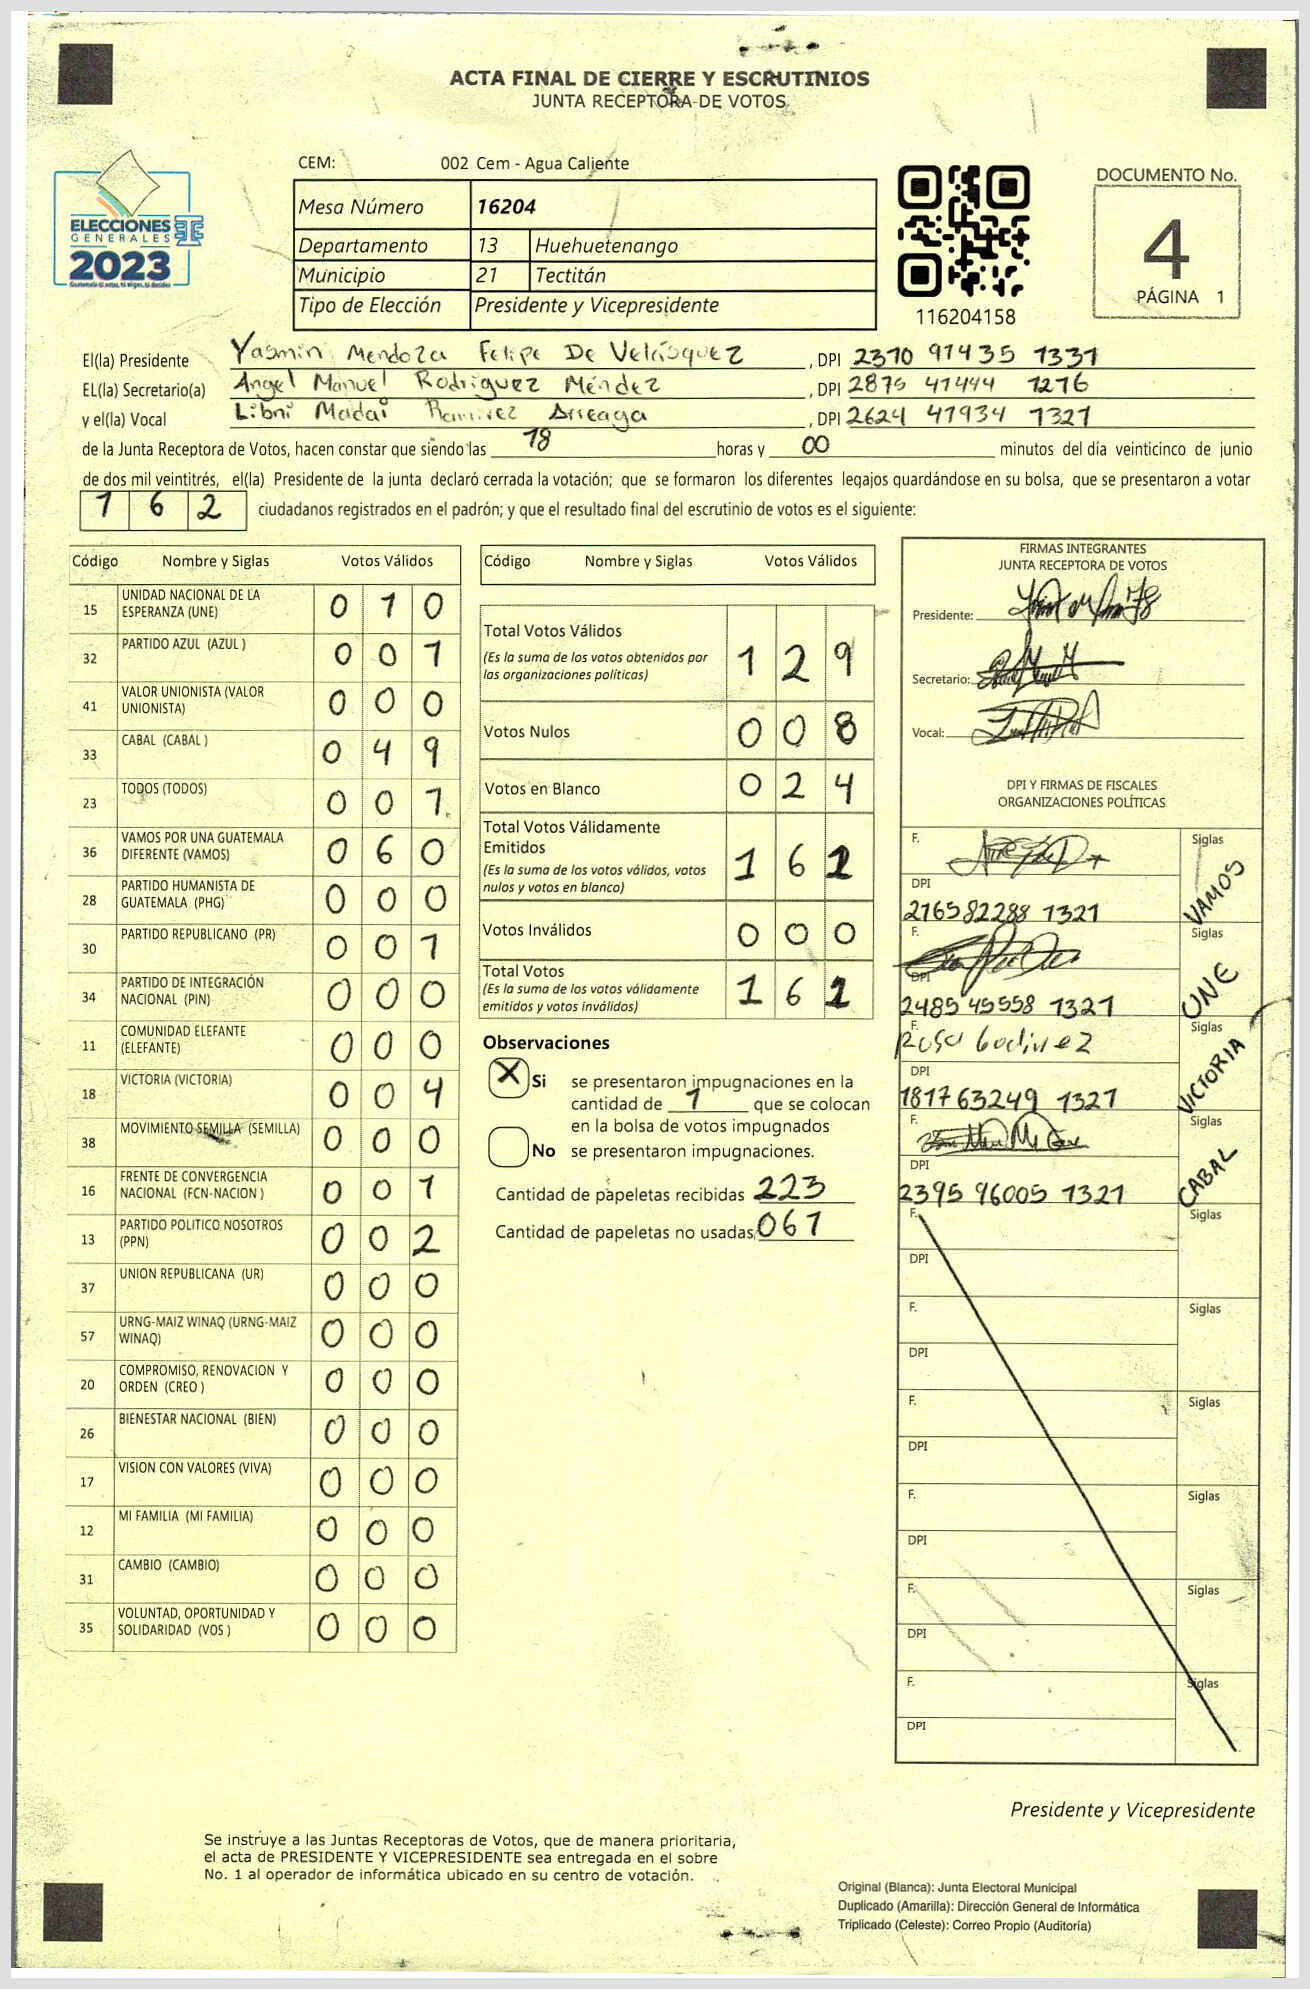 ACTA FINAL DE CIERRE Y ESCRUTINIOS
JUNTA RECEPTORA DE VOTOS
ELECCIONES
GENERALES
2023
CEM: 002 Cem - Agua Caliente
Mesa Número 16204
Departamento 13 Huehuetenango
Municipio 21 Tectitán
Tipo de Elección Presidente y Vicepresidente
116204158
DOCUMENTO No.
4
PÁGINA 1
El(la) Presidente Yasmin Mendoza Felipe De Velásquez, DPI 2370 91435 1331
EL(la) Secretario(a) Angel Manuel Rodriguez Méndez, DPI 2875 41444 1276
y el(la) Vocal Libni Madai Ramirez Arreaga, DPI 2624 41934 1321
de la Junta Receptora de Votos, hacen constar que siendo las 18 horas y 00 minutos del día veinticinco de junio
de dos mil veintitrés, el(la) Presidente de la junta declaró cerrada la votación; que se formaron los diferentes legajos quardándose en su bolsa, que se presentaron a votar
162 ciudadanos registrados en el padrón; y que el resultado final del escrutinio de votos es el siguiente:
Código Nombre y Siglas Votos Válidos
15 UNIDAD NACIONAL DE LA ESPERANZA (UNE) 0 1 0
32 PARTIDO AZUL (AZUL ) 0 0 1
41 VALOR UNIONISTA (VALOR UNIONISTA) 0 0 0
33 CABAL (CABAL ) 0 4 9
23 TODOS (TODOS) 0 0 1
36 VAMOS POR UNA GUATEMALA DIFERENTE (VAMOS) 0 6 0
28 PARTIDO HUMANISTA DE GUATEMALA (PHG) 0 0 0
30 PARTIDO REPUBLICANO (PR) 0 0 1
34 PARTIDO DE INTEGRACIÓN NACIONAL (PIN) 0 0 0
11 COMUNIDAD ELEFANTE (ELEFANTE) 0 0 0
18 VICTORIA (VICTORIA) 0 0 4
38 MOVIMIENTO SEMILLA (SEMILLA) 0 0 0
16 FRENTE DE CONVERGENCIA NACIONAL (FCN-NACION ) 0 0 1
13 PARTIDO POLITICO NOSOTROS (PPN) 0 0 2
37 UNION REPUBLICANA (UR) 0 0 0
57 URNG-MAIZ WINAQ (URNG-MAIZ WINAQ) 0 0 0
20 COMPROMISO, RENOVACION Y ORDEN (CREO ) 0 0 0
26 BIENESTAR NACIONAL (BIEN) 0 0 0
17 VISION CON VALORES (VIVA) 0 0 0
12 MI FAMILIA (MI FAMILIA) 0 0 0
31 CAMBIO (CAMBIO) 0 0 0
35 VOLUNTAD, OPORTUNIDAD Y SOLIDARIDAD (VOS ) 0 0 0
Código Nombre y Siglas Votos Válidos
Total Votos Válidos 1 2 9
(Es la suma de los votos obtenidos por
las organizaciones políticas)
Votos Nulos 0 0 8
Votos en Blanco 0 2 4
Total Votos Válidamente
Emitidos 1 6
(Es la suma de los votos válidos, votos
nulos y votos en blanco)
Votos Inválidos 0 0 0
Total Votos 1 6
(Es la suma de los votos válidamente
emitidos y votos inválidos)
Observaciones
X Si se presentaron impugnaciones en la
cantidad de 1 que se colocan
en la bolsa de votos impugnados
No se presentaron impugnaciones.
Cantidad de papeletas recibidas 223
Cantidad de papeletas no usadas 061
FIRMAS INTEGRANTES
JUNTA RECEPTORA DE VOTOS
Presidente:
Secretario:
Vocal:
DPI Y FIRMAS DE FISCALES
ORGANIZACIONES POLÍTICAS
F. Siglas
DPI VAMOS
216582288 1321
F. Siglas
DPI UNE
2485 45558 1321
F. Rosa Godinez Siglas
DPI VICTORIA
1817 63249 1321
F. Siglas
DPI CABAL
2395 96005 1321
F. Siglas
DPI
F. Siglas
DPI
F. Siglas
DPI
F. Siglas
DPI
F. Siglas
DPI
F. Siglas
DPI
Presidente y Vicepresidente
Se instruye a las Juntas Receptoras de Votos, que de manera prioritaria,
el acta de PRESIDENTE Y VICEPRESIDENTE sea entregada en el sobre
No. 1 al operador de informática ubicado en su centro de votación.
Original (Blanca): Junta Electoral Municipal
Duplicado (Amarilla): Dirección General de Informática
Triplicado (Celeste): Correo Propio (Auditoría)